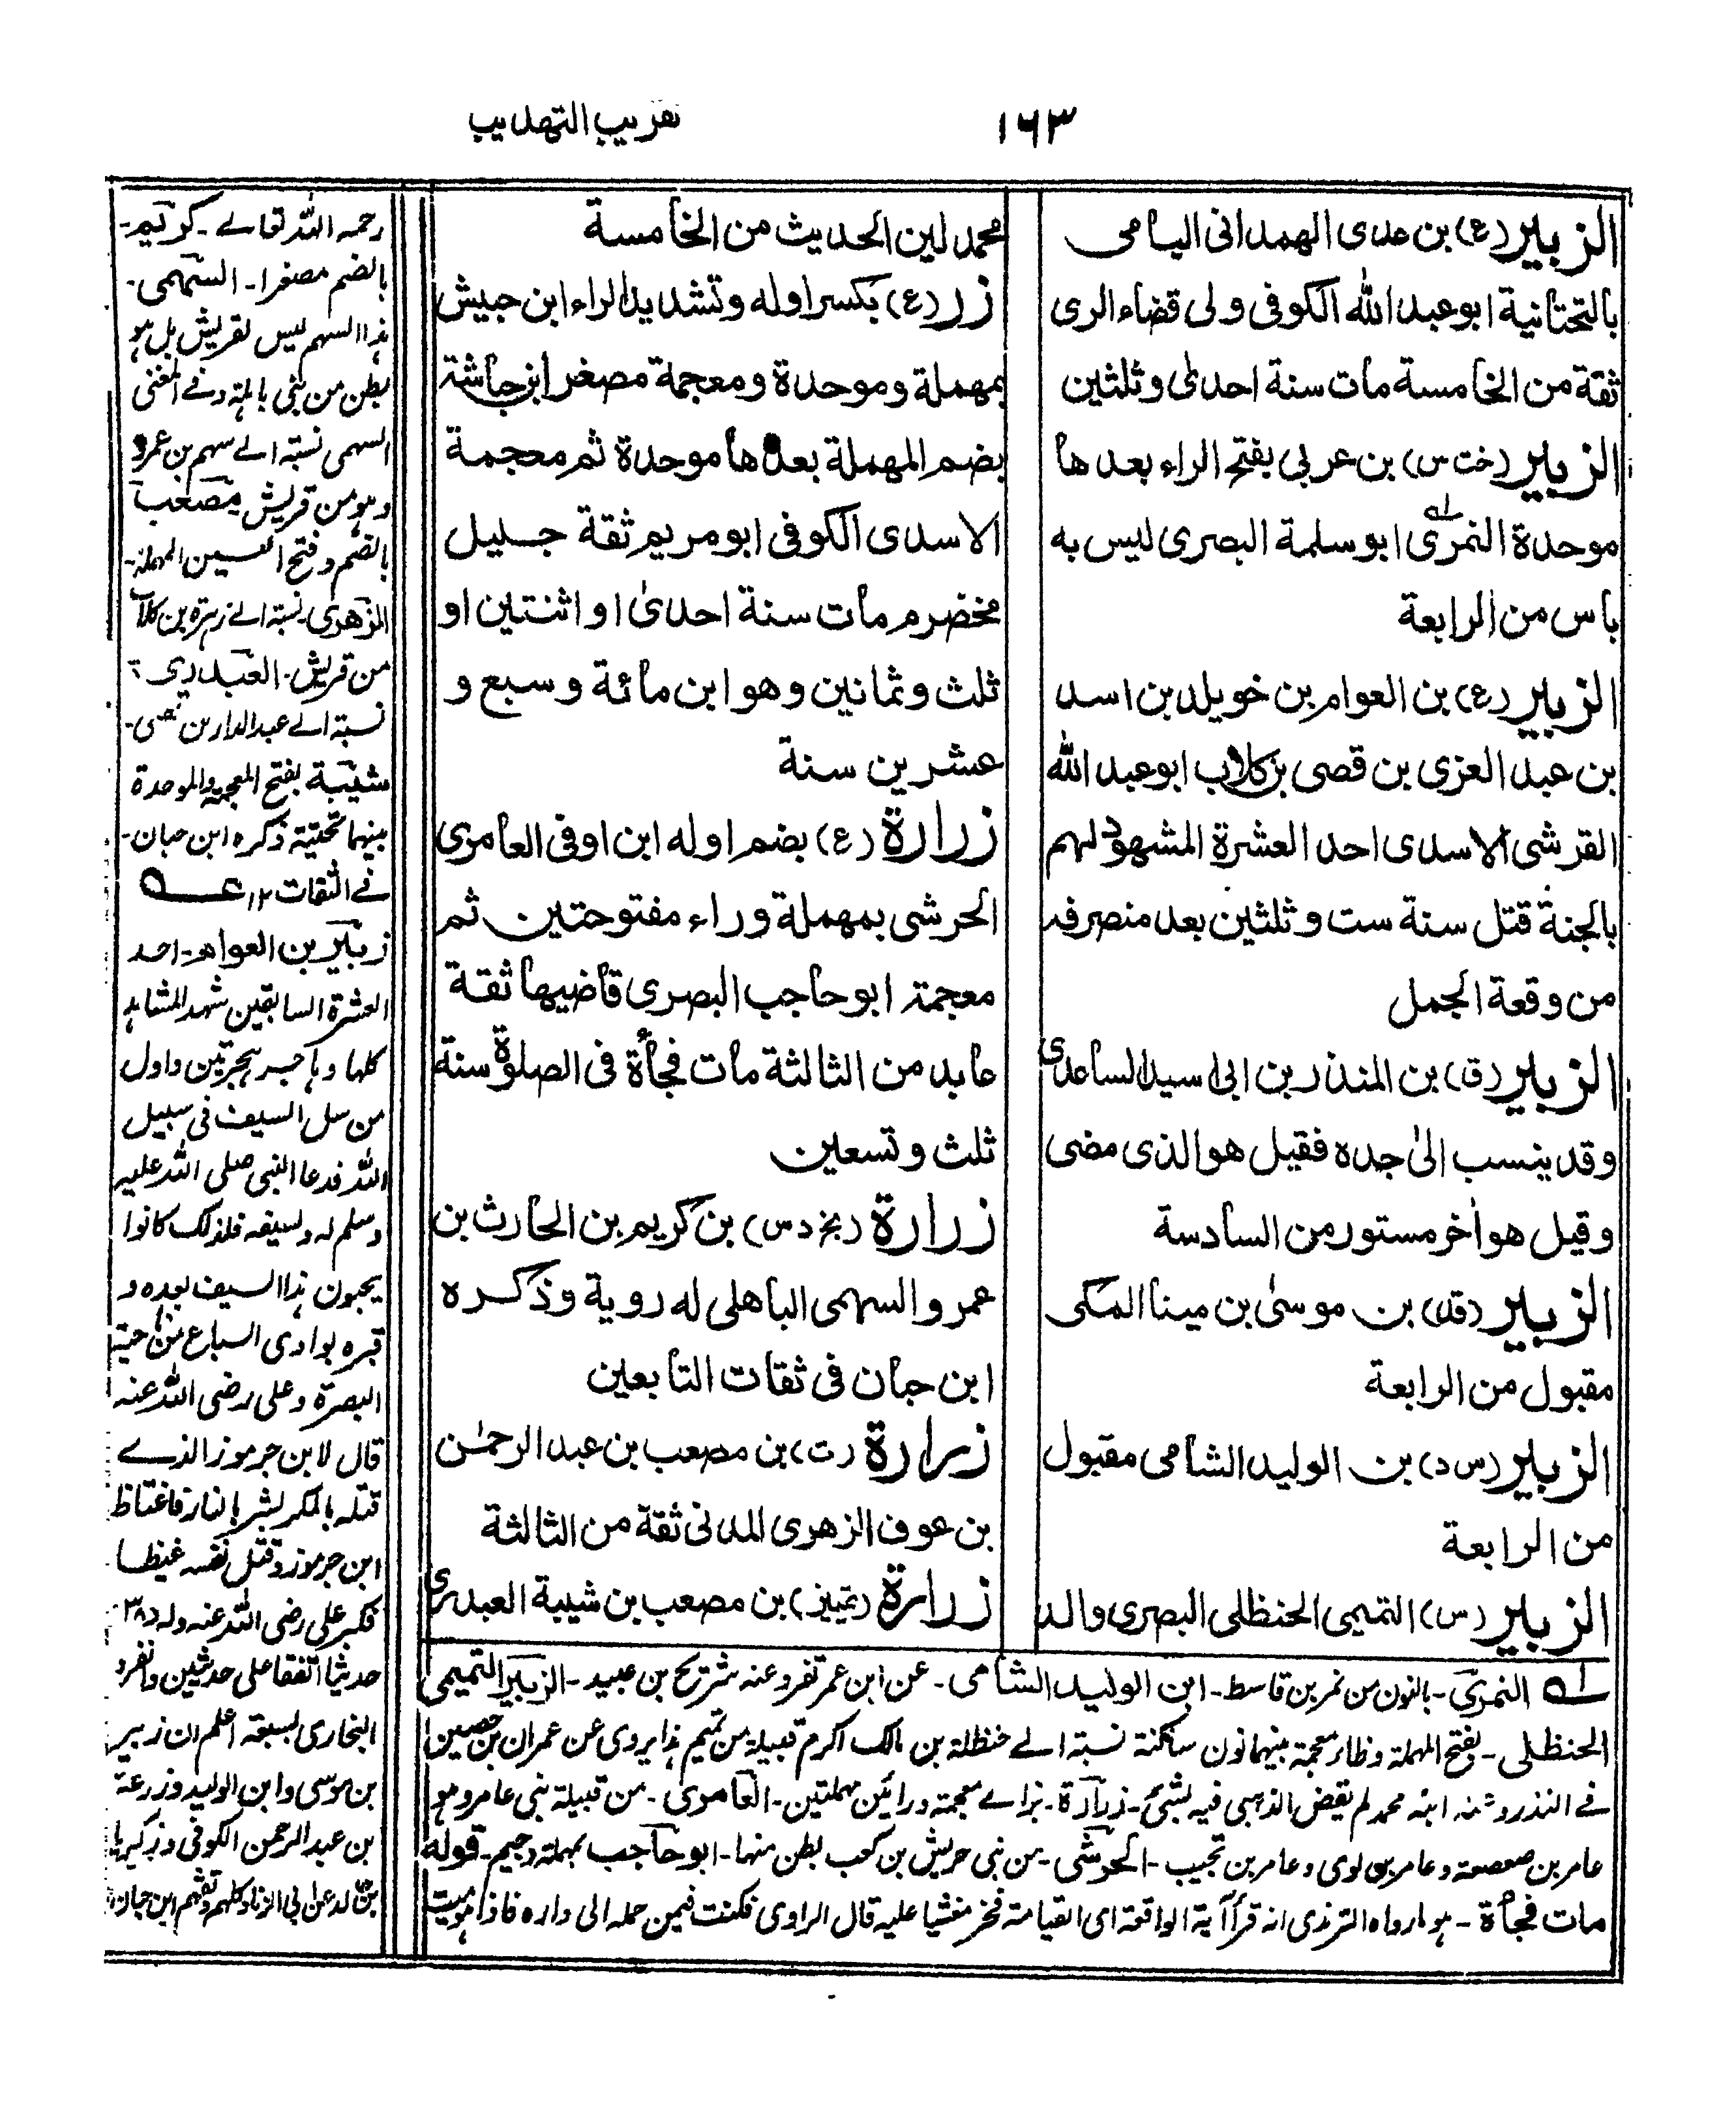 ١٦٣
تقريب التهذيب
الزبير (ع) بن عدى الهمدانى اليامى
بالتحتانية ابو عبد الله الكوفى ولى قضاء الرى
ثقة من الخامسة مات سنة احدىٰ وثلثين
الزبير (خت س) بن عربى بفتح الراء بعدها
موحدة النمرى ابو سلمة البصرى ليس به
باس من الرابعة
الزبير (ع) بن العوام بن خويلد بن اسد
بن عبد العزى بن قصى بن كلاب ابو عبد الله
القرشى الاسدى احد العشرة المشهود لهم
بالجنة قتل سنة ست وثلثين بعد منصرفه
من وقعة الجمل
الزبير (ق) بن المنذر بن ابى اسيد الساعدى
وقد ينسب الىٰ جده فقيل هو الذى مضى
وقيل هو اٰخر مستور من السادسة
الزبير (قد) بن موسىٰ بن مينا المكى
مقبول من الرابعة
الزبير (س د) بن الوليد الشامى مقبول
من الرابعة
الزبير (س) التميمى الحنظلى البصرى والد
محمد لين الحديث من الخامسة
زر (ع) بكسر اوله وتشديد الراء ابن حبيش
بمهملة وموحدة ومعجمة مصغر ابن حباشة
بضم المهملة بعدها موحدة ثم معجمة
الاسدى الكوفى ابو مريم ثقة جليل
مخضرم مات سنة احدىٰ او اثنتين او
ثلث وثمانين وهو ابن مائة وسبع و
عشرين سنة
زرارة (ع) بضم اوله ابن اوفى العامرى
الحرشى بمهملة وراء مفتوحتين ثم
معجمة ابو حاجب البصرى قاضيها ثقة
عابد من الثالثة مات فجأة فى الصلوة سنة
ثلث وتسعين
زرارة (بخ د س) بن كريم بن الحارث بن
عمرو السهمى الباهلى له روية وذكره
ابن حبان فى ثقات التابعين
زرارة (ت) بن مصعب بن عبد الرحمٰن
بن عوف الزهرى المدنى ثقة من الثالثة
زرارة (تميز) بن مصعب بن شيبة العبدرى
رحمه الله تعالے ـ كريم ـ
بالضم مصغرا ـ السهمى ـ
ہذا السهم ليس لقريش بل ہو
بطن من بنى باہلة وفے المغنى
السهمى نسبة الے سهم بن عمرو
وہو من قريش مصعب
بالضم وفتح العين المهملة ـ
الزهرى نسبة الے زہرة بن كلاب
من قريش ـ العبدرى ـ
نسبة الے عبد الدار بن قصى ـ
شيبة بفتح المعجمة والموحدة
بينهما تحتية ذكره ابن حبان ـ
فے الثقات ١٢ عــه
زبير بن العوام ـ احد
العشرة السابقين شهد المشاہد
كلها وہاجر ہجرتين واول
من سل السيف فى سبيل
الله فدعا النبى صلى الله عليه
وسلم له ولسيفه فلذلك كانوا
يحبون ہذا السيف بعده و
قبره بوادى السباع من
البصرة وعلى رضى الله عنه
قال لابن جرموز الذے
قتله بالمكر بشر بالنار فاغتاظ
ابن جرموز وقتل نفسه غيظا
فكبر على رضى الله عنه وله ٣٨
حديثا اتفقا على حديثين وانفرد
البخارى بسبعة اعلم ان زبير
بن موسى وابن الوليد وزرعة
بن عبد الرحمن الكوفى وزكريا
بن خالد عن ابى الزناد كلهم وثقهم ابن حبان
لــه النمرى ـ بالنون من نمر بن قاسط ـ ابن الوليد الشامى ـ عن ابن عمر تفرد عنه شريح بن عبيد ـ الزبير التميمى
الحنظلى ـ بفتح المهملة وظاء معجمة بينهما نون ساكنة نسبة الے حنظلة بن مالك اكرم قبيلة من تميم ہذا يروى عن عمران بن حصين
فے النذر وعنه ابنه محمد لم يقض الذہبى فيه بشئ ـ زرارة ـ بزاے معجمة ورائين مهملتين ـ العامرى ـ من قبيلة بنى عامر وہو
عامر بن صعصعة وعامر بن لوى وعامر بن تجيب ـ الحرشى ـ من بنى حريش بن كعب بطن منها ـ ابو حاجب بمهملة وجيم ـ قوله
مات فجأة ـ ہو ما رواه الترمذى انه قرأ آية الواقعة اى القيامة فخر مغشيا عليه قال الراوى فكنت فيمن حمله الى داره فاذا ہو ميت